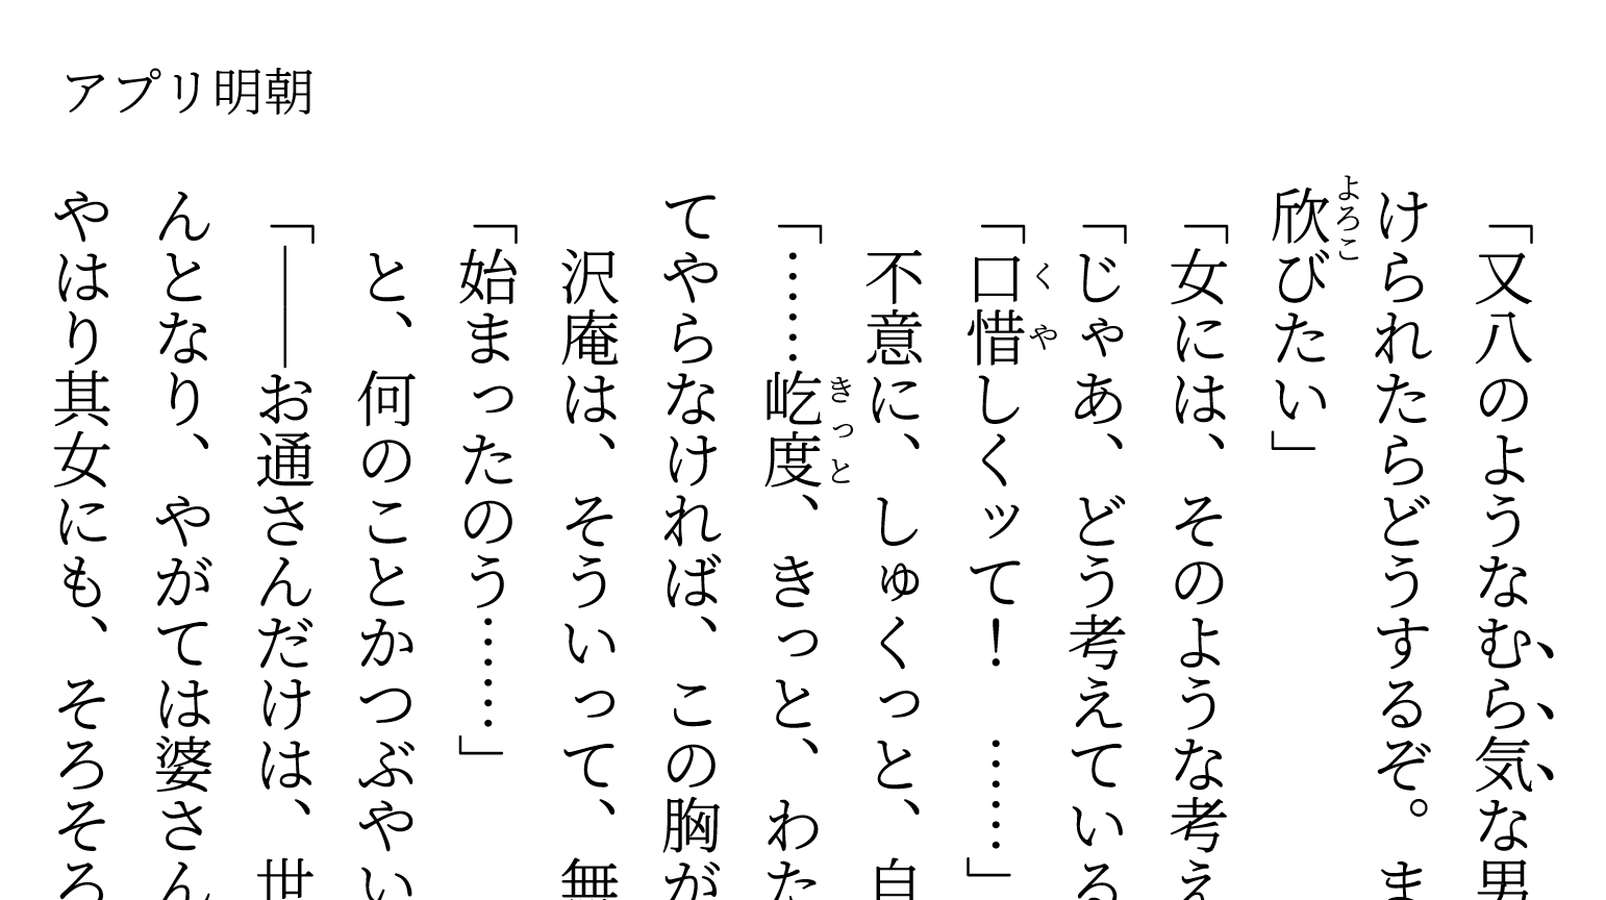 アプリ明朝
「又八のようなむら気な男
けられたらどうするぞ。ま
欣びたい」
よろこ
「女には、そのような考え
「じゃあ、どう考えている
「口惜しくッて！　……」
くや
不意に、しゅくっと、自
「……屹度、きっと、わた
きっと
てやらなければ、この胸が
沢庵は、そういって、無
「始まったのう……」
と、何のことかつぶやい
「――お通さんだけは、世
んとなり、やがては婆さん
やはり其女にも、そろそろ